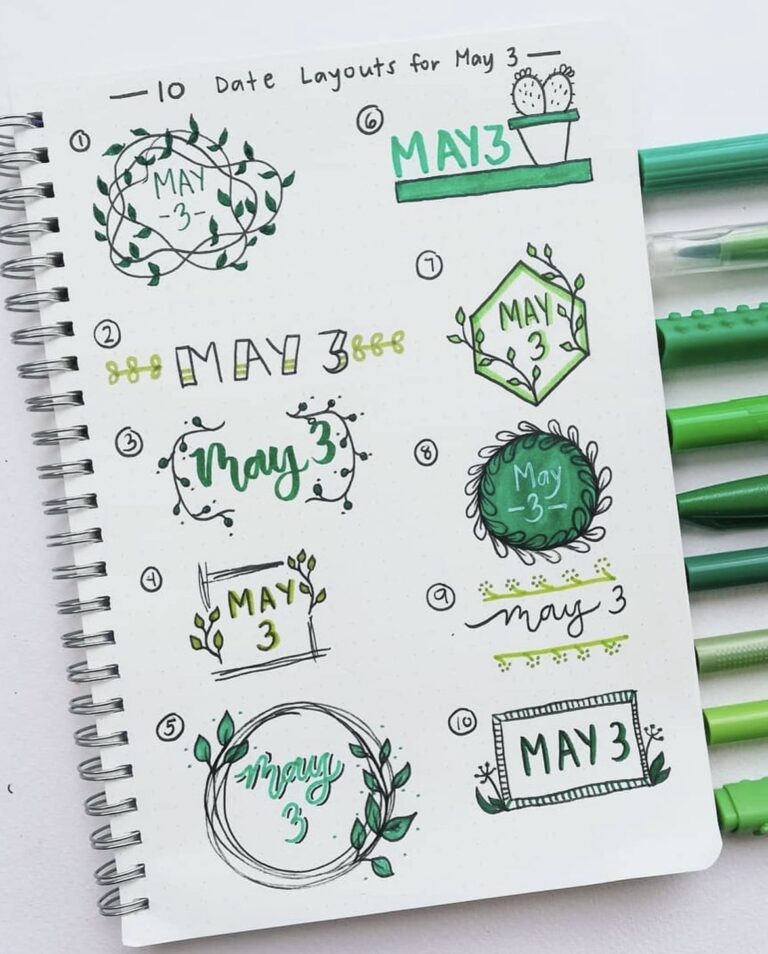 —10 Date Layouts for May 3—
①
MAY
-3-
②
MAY 3
③
may 3
④
MAY
3
⑤
may
3
⑥
MAY3
⑦
MAY
3
⑧
May
-3-
⑨
may 3
⑩
MAY 3